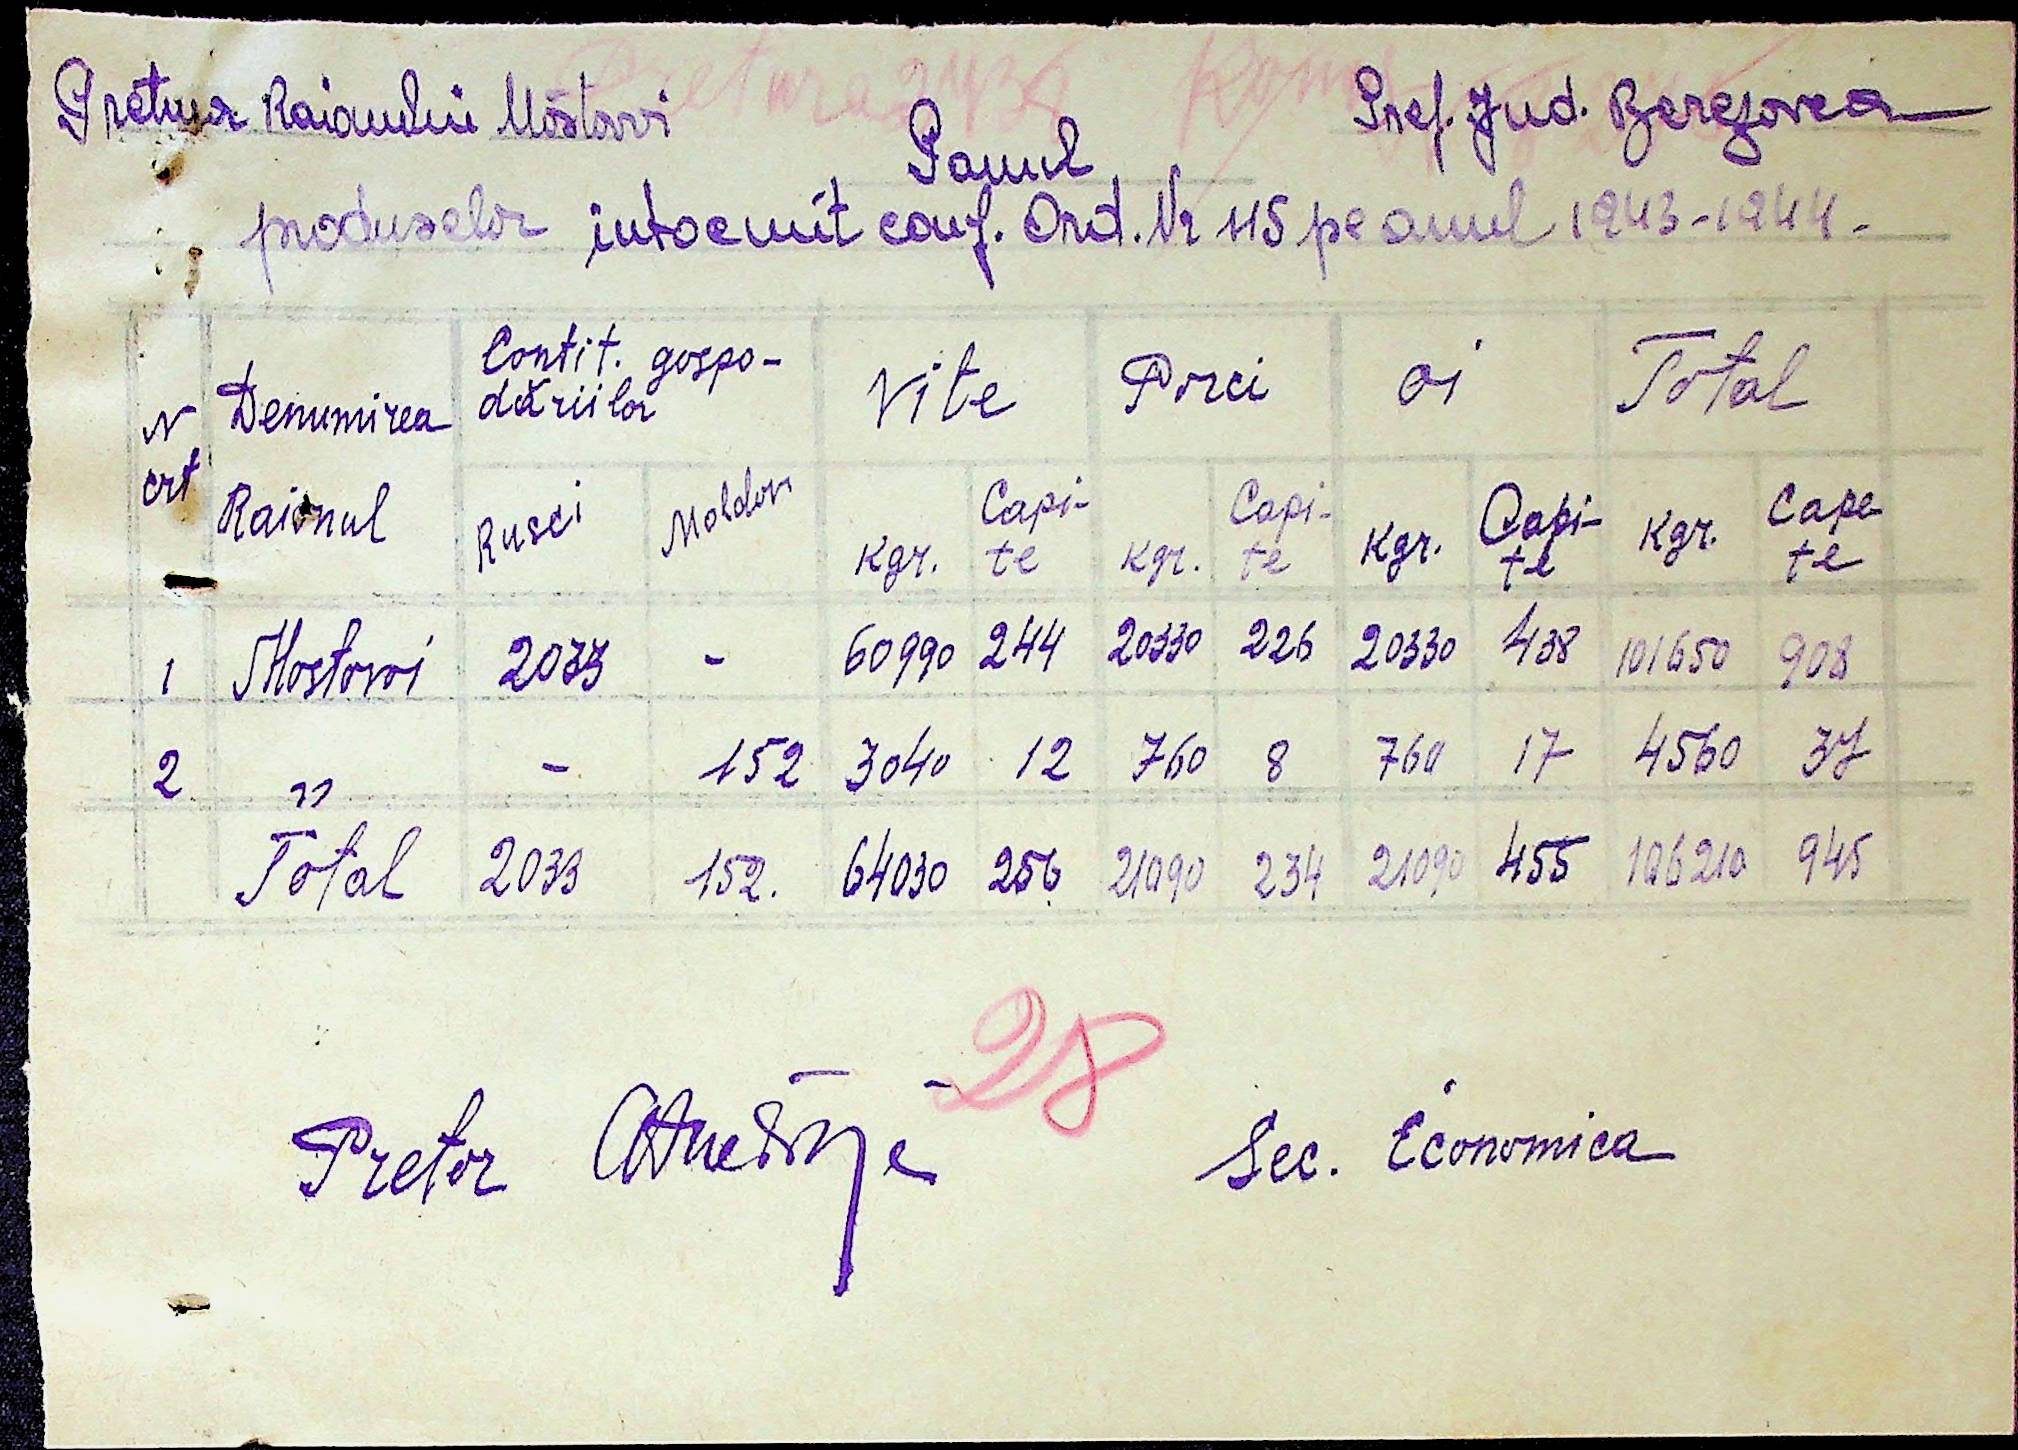 Pretura Raionului Mostovoi
Pref. Jud. Berezovca
Panul
produselor intocmit conf. Ord. Nr 115 pe anul 1943-1944.
N crt | Denumirea Raionul | Contit. gospo-dăriilor | Vite | Porci | oi | Total
Rusei | Moldov | Kgr. | Capi-te | Kgr. | Capi-te | Kgr. | Capi-te | Kgr. | Cape-te
1 Mostovoi 2033 - 60990 244 20330 226 20330 438 101650 908
2 " - 152 3040 12 760 8 760 17 4560 37
Total 2033 152. 64030 256 21090 234 21090 455 106210 945
28
Pretor
Sec. Economica